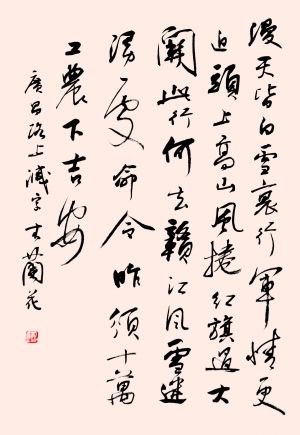 漫天皆白雪裏行軍情更
迫頭上高山風捲紅旗過大
關此行何去贛江风雪迷
漫處命令昨頒十萬
工農下吉安
廣昌路上減字木蘭花